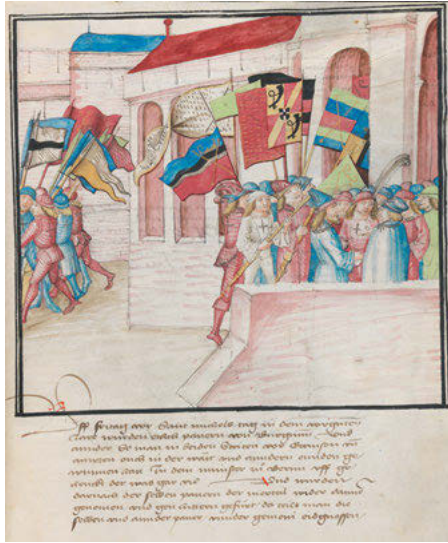 Uff fritag vor Sant michels tag in dem
Jare wurden etlich panern von Burgunn Und
ander so man in beiden Striten vor Granson
murten ouch in der und anndern enden ge
wunnen hatt Zu dem munster zu Bernn uff ge
henckt der was gar vil Und wurden
darnach der selben panern der merteil wider
genomen und gen lutzern gefurt do teilt man die
selben und ander paner under gemein eidgnossen